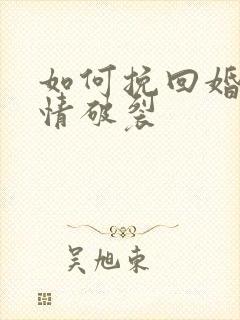 如何挽回婚
情破裂
吴旭东